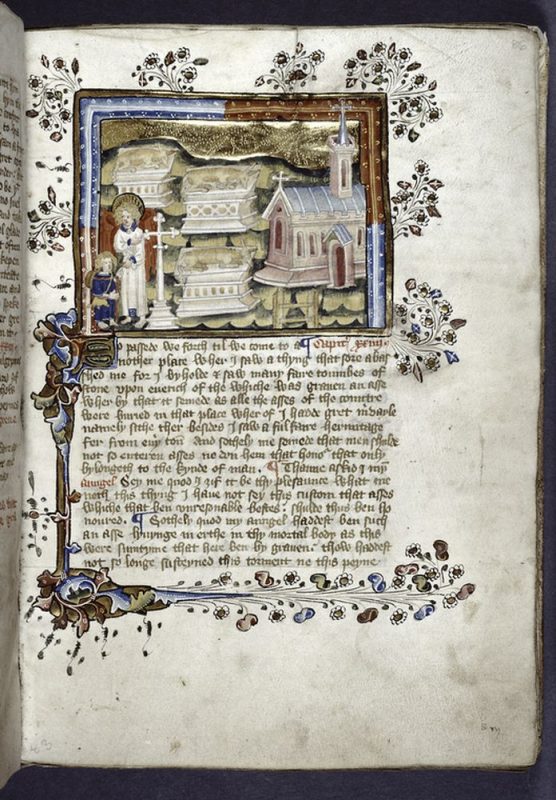 So passede we forth til we come to a ¶ Capitm
nother place wher J saw a thyng that sore abas
shed me for J byholde & saw many faire toumbes of
stone upon euerch of the whiche was grauen an asse
wher by that it semede as alle the asses of the contre
were buried in that place wher of J hadde gret meruayle
namely sithe ther besides J saw a ful faire hermitage
fer from eny toun and sothely me semed that men shulde
not so enteren asses ne don hem that honor that only
bylongeth to the kynde of man. ¶ Thanne asked J my
aungel Sey me quod J ȝif it be thy plesaunce what me
neth this thyng J haue not sey this custom that asses
whiche that ben unresonable bestes. shulde thus ben ho
noured. ¶ Sothely quod myn aungel haddest ben such
an asse lyuynge in erthe in thy mortal body as this
were sumtyme that here ben by grauen. thow haddest
not so longe susteyned this torment ne this peyne